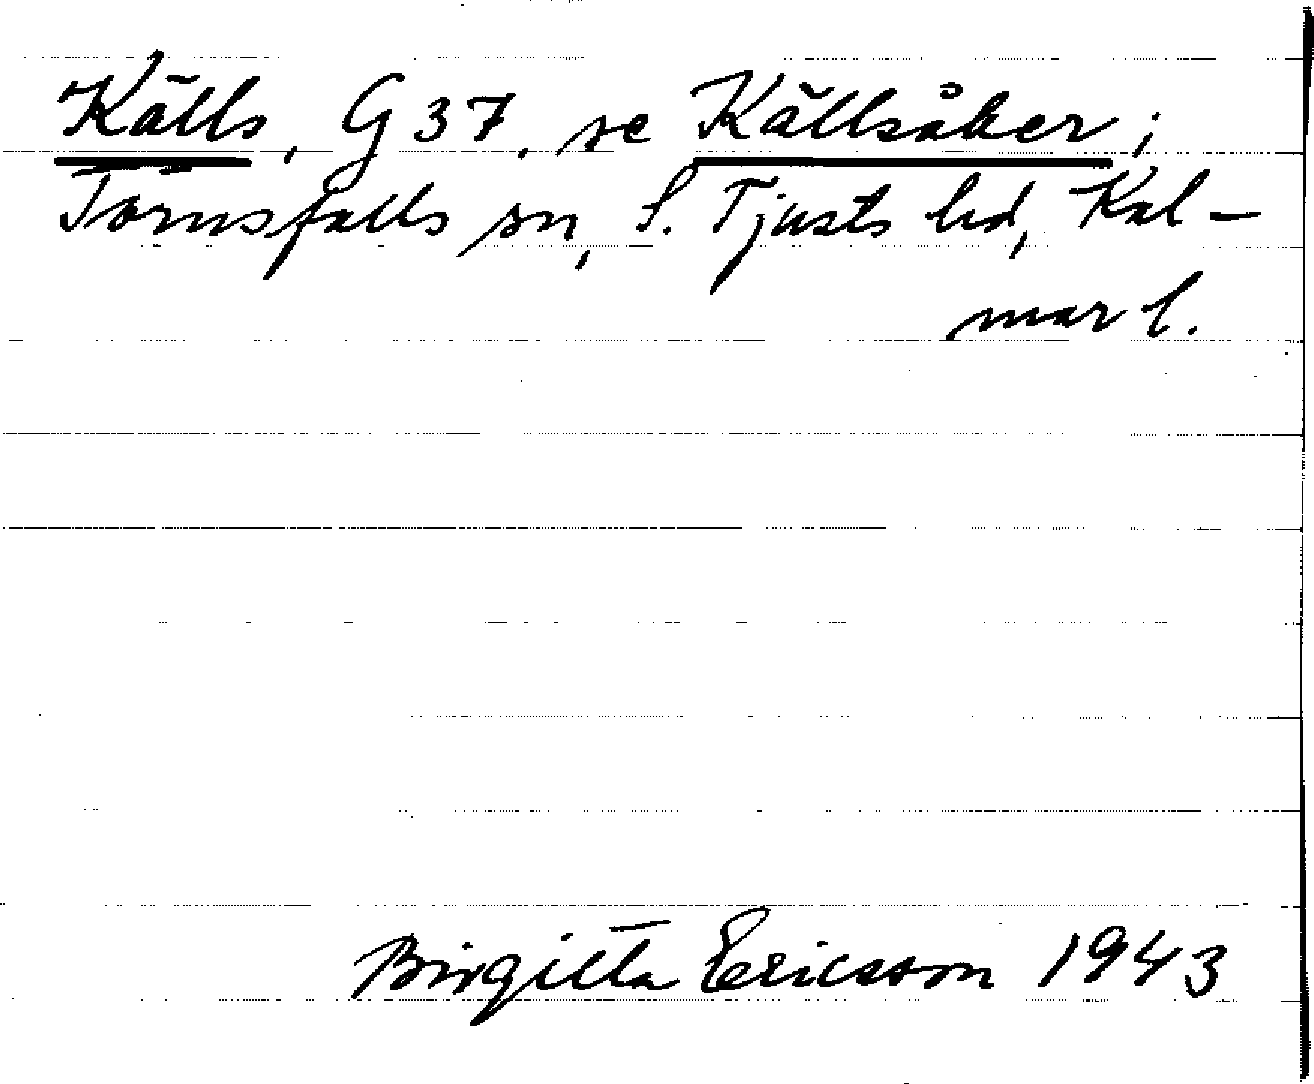 Källs, G 37, se Källsåker;
Törnsfalls sn, S. Tjusts hd, Kal-
mar l.
Birgitta Ericsson 1943